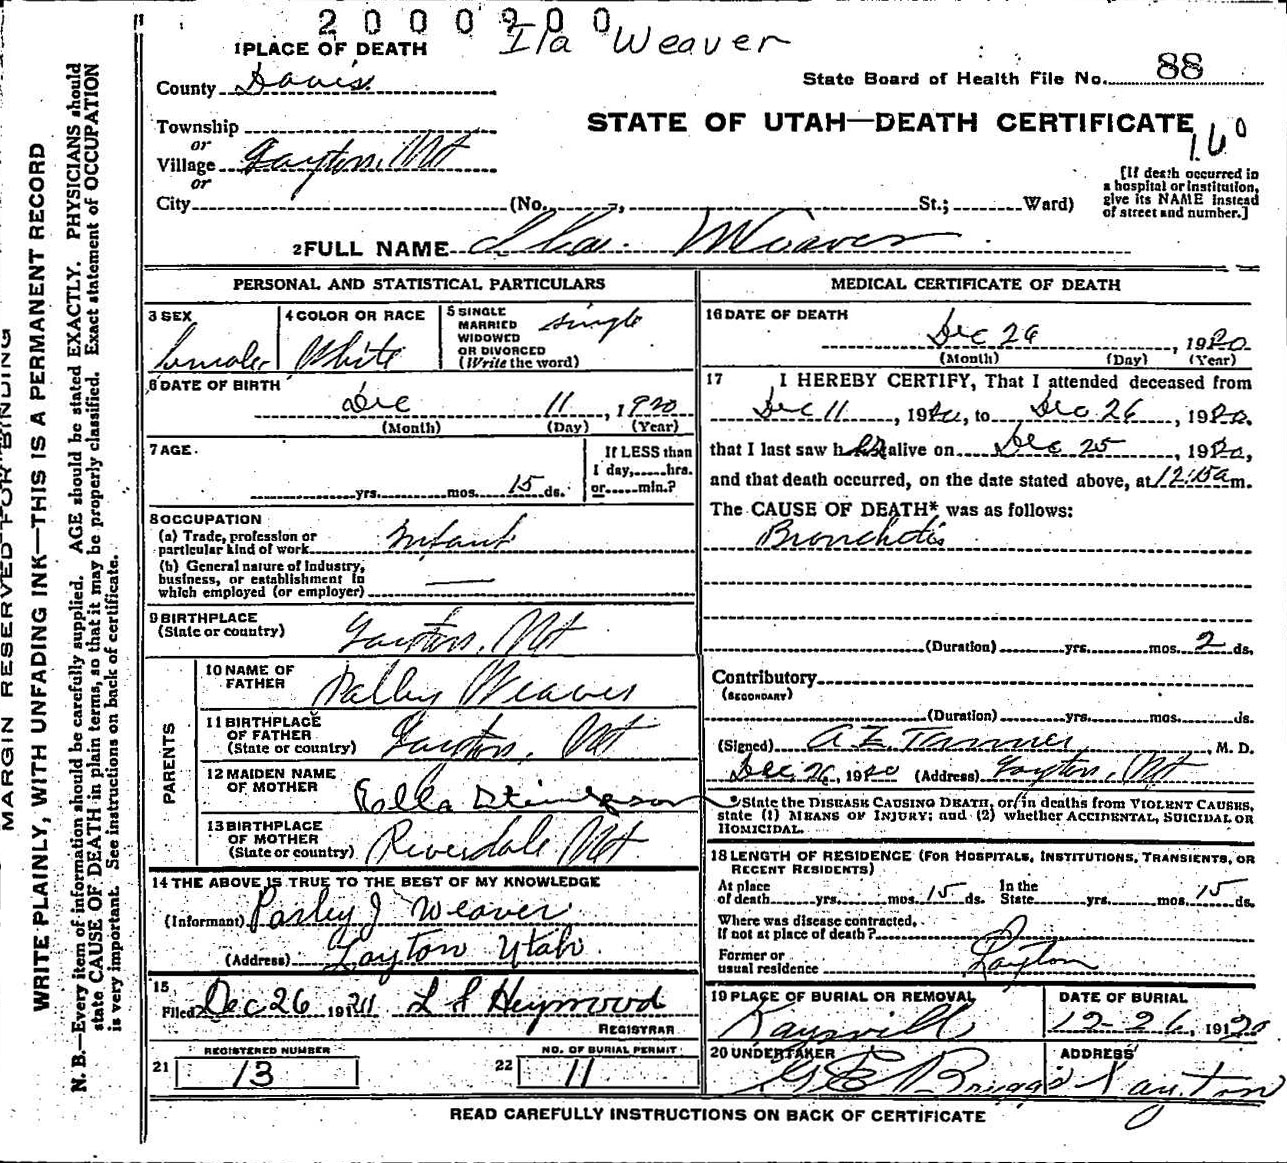 2000900
Ila Weaver
1 PLACE OF DEATH
County Davis
State Board of Health File No. 88
Township
or
Village Layton, Ut
or
City (No. , St.; Ward)
STATE OF UTAH—DEATH CERTIFICATE
160
[If death occurred in
a hospital or institution,
give its NAME instead
of street and number.]
2 FULL NAME Weaver
PERSONAL AND STATISTICAL PARTICULARS
3 SEX
female
4 COLOR OR RACE
White
5 SINGLE
MARRIED
WIDOWED
OR DIVORCED
(Write the word)
single
6 DATE OF BIRTH
Dec 11, 1920
(Month) (Day) (Year)
7 AGE.
yrs. mos. 15 ds.
If LESS than
1 day, hrs.
or min.?
8 OCCUPATION
(a) Trade, profession or
particular kind of work Infant
(b) General nature of Industry,
business, or establishment in
which employed (or employer)
9 BIRTHPLACE
(State or country) Layton, Ut
PARENTS
10 NAME OF
FATHER Weaver
11 BIRTHPLACE
OF FATHER
(State or country) Layton, Ut
12 MAIDEN NAME
OF MOTHER
13 BIRTHPLACE
OF MOTHER
(State or country) Riverdale Ut
14 THE ABOVE IS TRUE TO THE BEST OF MY KNOWLEDGE
(Informant) Parley J Weaver
(Address) Layton Utah.
15
Filed Dec 26 191 L S Heywood
REGISTRAR
21 REGISTERED NUMBER
13
22 NO. OF BURIAL PERMIT
11
MEDICAL CERTIFICATE OF DEATH
16 DATE OF DEATH
Dec 26, 1920
(Month) (Day) (Year)
17 I HEREBY CERTIFY, That I attended deceased from
Dec 11, 1920, to Dec 26, 1920.
that I last saw her alive on Dec 25, 1920,
and that death occurred, on the date stated above, at 12:15a m.
The CAUSE OF DEATH* was as follows:
Bronchotis
(Duration) yrs. mos. 2 ds.
Contributory
(SECONDARY)
(Duration) yrs. mos. ds.
(Signed) A. Z. Tanner, M. D.
Dec 26, 1920 (Address) Layton, Ut
*State the DISEASE CAUSING DEATH, or, in deaths from VIOLENT CAUSES,
state (1) MEANS OF INJURY; and (2) whether ACCIDENTAL, SUICIDAL OR
HOMICIDAL.
18 LENGTH OF RESIDENCE (FOR HOSPITALS, INSTITUTIONS, TRANSIENTS, OR
RECENT RESIDENTS)
At place
of death yrs. mos. 15 ds. In the
State yrs. mos. 15 ds.
Where was disease contracted,
If not at place of death?
Former or
usual residence Layton
19 PLACE OF BURIAL OR REMOVAL
Kaysvill
DATE OF BURIAL
12-26, 1920
20 UNDERTAKER
G E Briggs
ADDRESS
Layton
READ CAREFULLY INSTRUCTIONS ON BACK OF CERTIFICATE
MARGIN RESERVED FOR BINDING
WRITE PLAINLY, WITH UNFADING INK—THIS IS A PERMANENT RECORD
N. B.—Every item of information should be carefully supplied. AGE should be stated EXACTLY. PHYSICIANS should
state CAUSE OF DEATH in plain terms, so that it may be properly classified. Exact statement of OCCUPATION
is very important. See instructions on back of certificate.